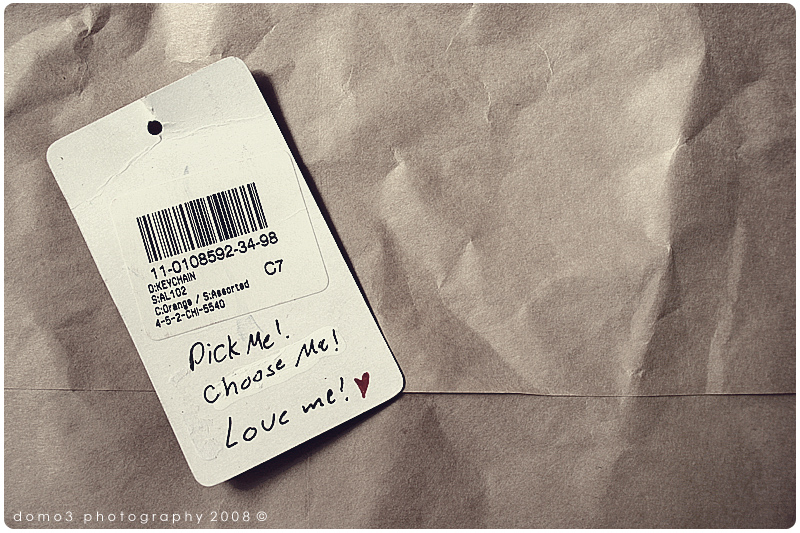 11-0108592-34-98
D:KEYCHAIN
S:AL102 C7
C:Orange / S:Assorted
4-5-2-CHI-5540
Pick Me!
Choose Me!
Love me!
domo3 photography 2008 ©